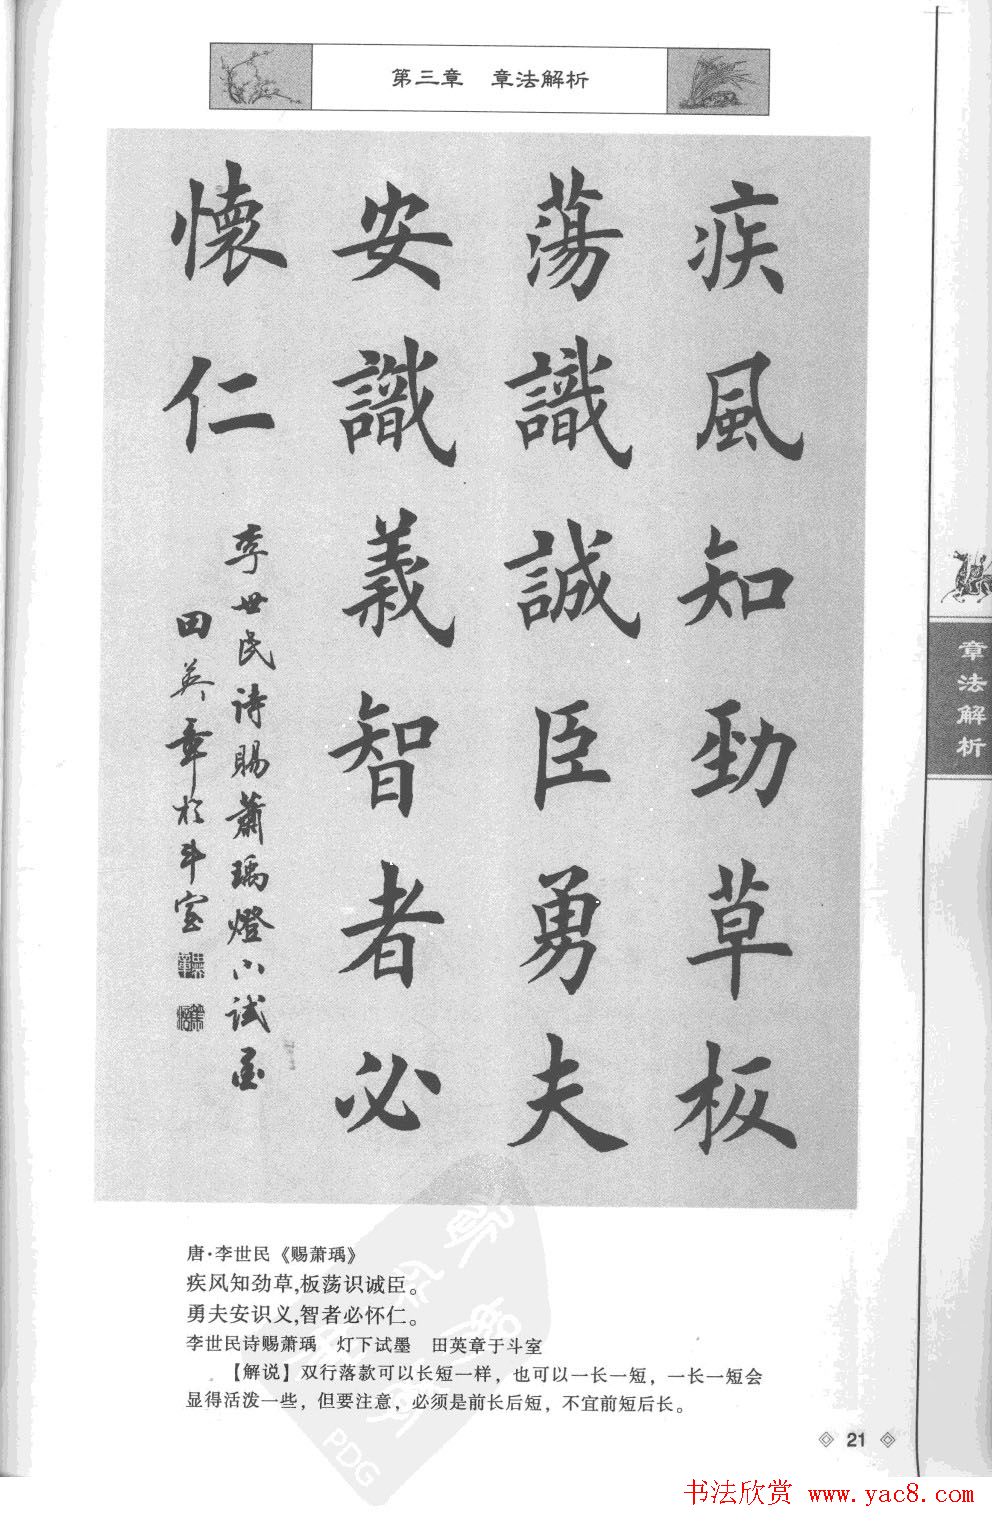 第三章 章法解析
疾風知勁草板
蕩識誠臣勇夫
安識義智者必
懷仁
李世民诗賜蕭瑀燈下试墨
田英章於斗室
章法解析
唐·李世民《赐萧瑀》
疾风知劲草,板荡识诚臣。
勇夫安识义,智者必怀仁。
李世民诗赐萧瑀 灯下试墨 田英章于斗室
【解说】双行落款可以长短一样，也可以一长一短，一长一短会
显得活泼一些，但要注意，必须是前长后短，不宜前短后长。
PDG
21
书法欣赏 www.yac8.com